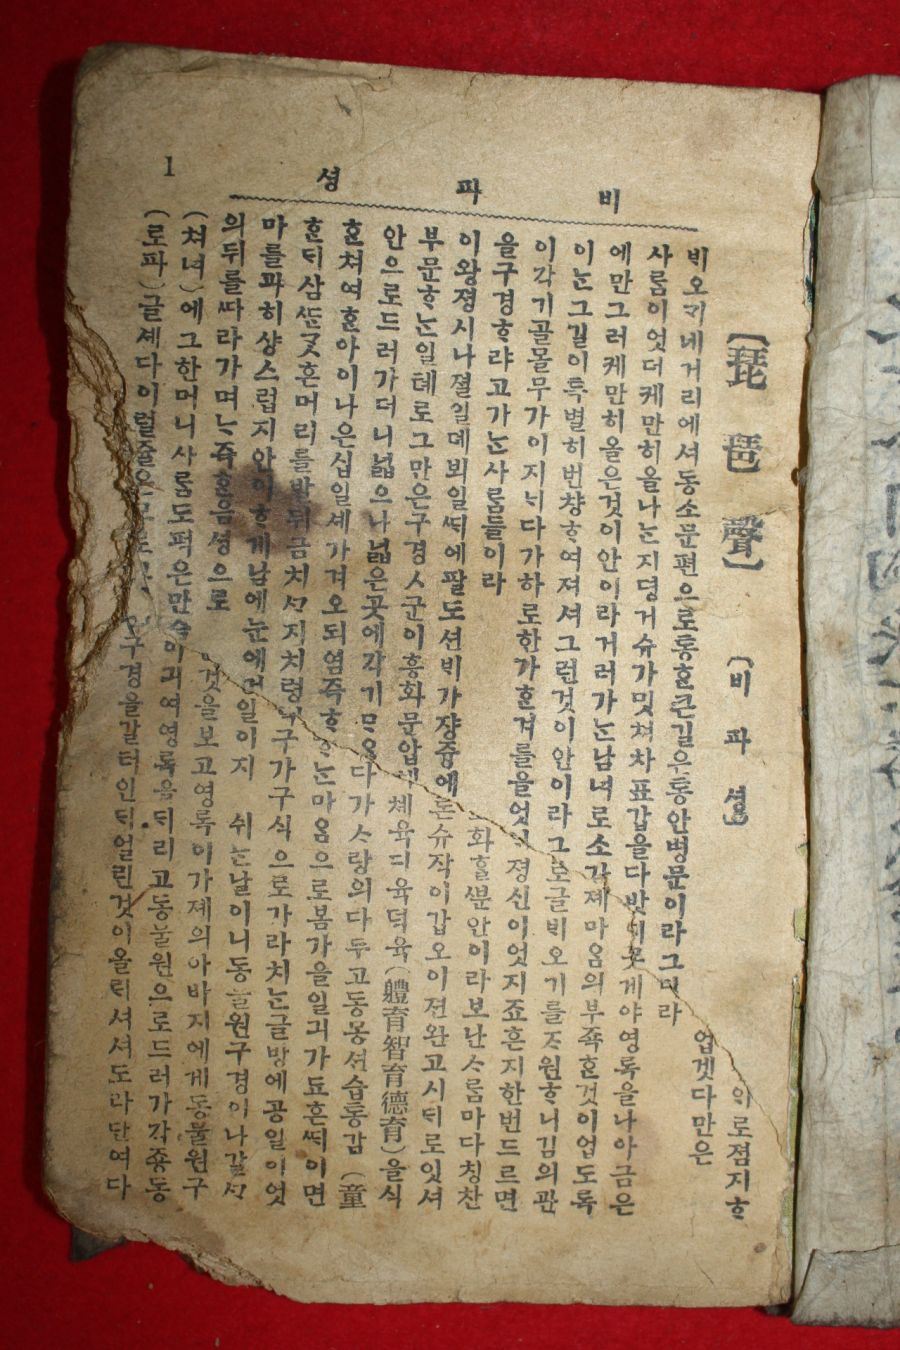 1 비파셩
【琵琶聲】 (비파셩) 의로졈지ᄒᆞ
비오ᄀᆡ네거리에셔동소문편으로통ᄒᆞᆫ큰길우통안병문이라 업겟다만은
사ᄅᆞᆷ이엇더케만히올나ᄂᆞᆫ지뎡거슈가밋쳐차표갑을다밧 라
에만그러케만히올은것이안이라거러가ᄂᆞᆫ남녀로소각 게야영록을나아금은
이ᄂᆞᆫ그길이특별히번챵ᄒᆞ여져셔그런것이안이라그 졔마음의부죡ᄒᆞᆫ것이업도록
이각기골몰무가이지ᄂᆡ다가하로한가ᄒᆞᆫ겨를을엇 로글ᄇᆡ오기를ᄌᆞ원ᄒᆞ니김의관
을구경ᄒᆞ랴고가ᄂᆞᆫ사ᄅᆞᆷ들이라 졍신이엇지죠흔지한번드르면
이왕졍시나졀일데뵈일ᄯᅢ에팔도션ᄇᆡ가쟝즁에 화ᄒᆞᆯᄲᅮᆫ안이라보난ᄉᆞᄅᆞᆷ마다칭찬
부문ᄒᆞᄂᆞᆫ일톄로그만은구경ᄉᆞ군이흥화문압 든슈작이갑오이젼완고시ᄃᆡ로잇셔
안으로드러가더니넓으나넓은곳에각기 톄육디육덕육(軆育智育德育)을식
ᄒᆞᆫ쳐여ᄒᆞᆫ아이나은십일셰가겨오되염즉ᄒᆞ 다가ᄉᆞ랑의다두고동몽션습통감(童
ᄒᆞᆫᄃᆡ삼ᄯᅡᆫᄀᆞᆺ흔머리를발뒤금치ᄭᆞ지치령 ᄂᆞᆫ마ᄋᆞᆷ으로봄가을일긔가됴흔ᄯᅢ이면
마를과히샹스럽지안이ᄒᆞ게남에눈에 구가구식으로가라치ᄂᆞᆫ글방에공일이엇
의뒤를ᄯᅡ라가며ᄂᆞ즉ᄒᆞᆫ음셩으로 일이지 쉬ᄂᆞᆫ날이니동물원구경이나갈ᄭᆞ
(쳐녀)에그한머니사ᄅᆞᆷ도퍽은만 것을보고영록이가졔의아바지에게동물원구
(로파)글셰다이럴줄은 긔여영록을ᄃᆡ리고동물원으로드러가각죵동
구경을갈터인ᄃᆡ얼린것이올ᄅᆡ셔셔도라단여다